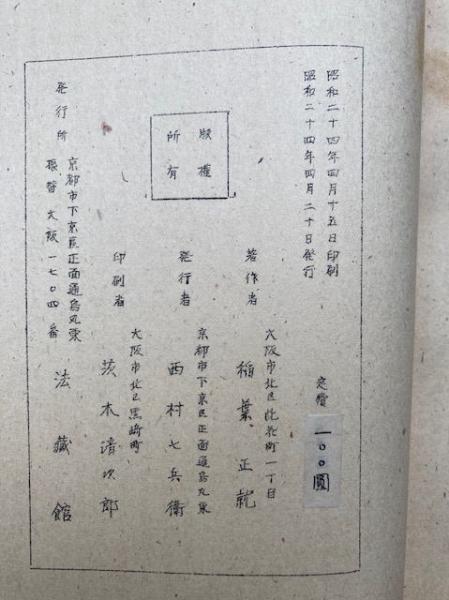 昭和二十四年四月十五日印刷
昭和二十四年四月二十日発行
定價 一〇〇圓
版權
所有
大阪市北区此花町一丁目
著作者 稲葉正就
京都市下京区正面通烏丸東
発行者 西村七兵衛
大阪市北区黒崎町
印刷者 茨木清次郎
京都市下京区正面通烏丸東
発行所 法藏館
振替大阪一七〇四番